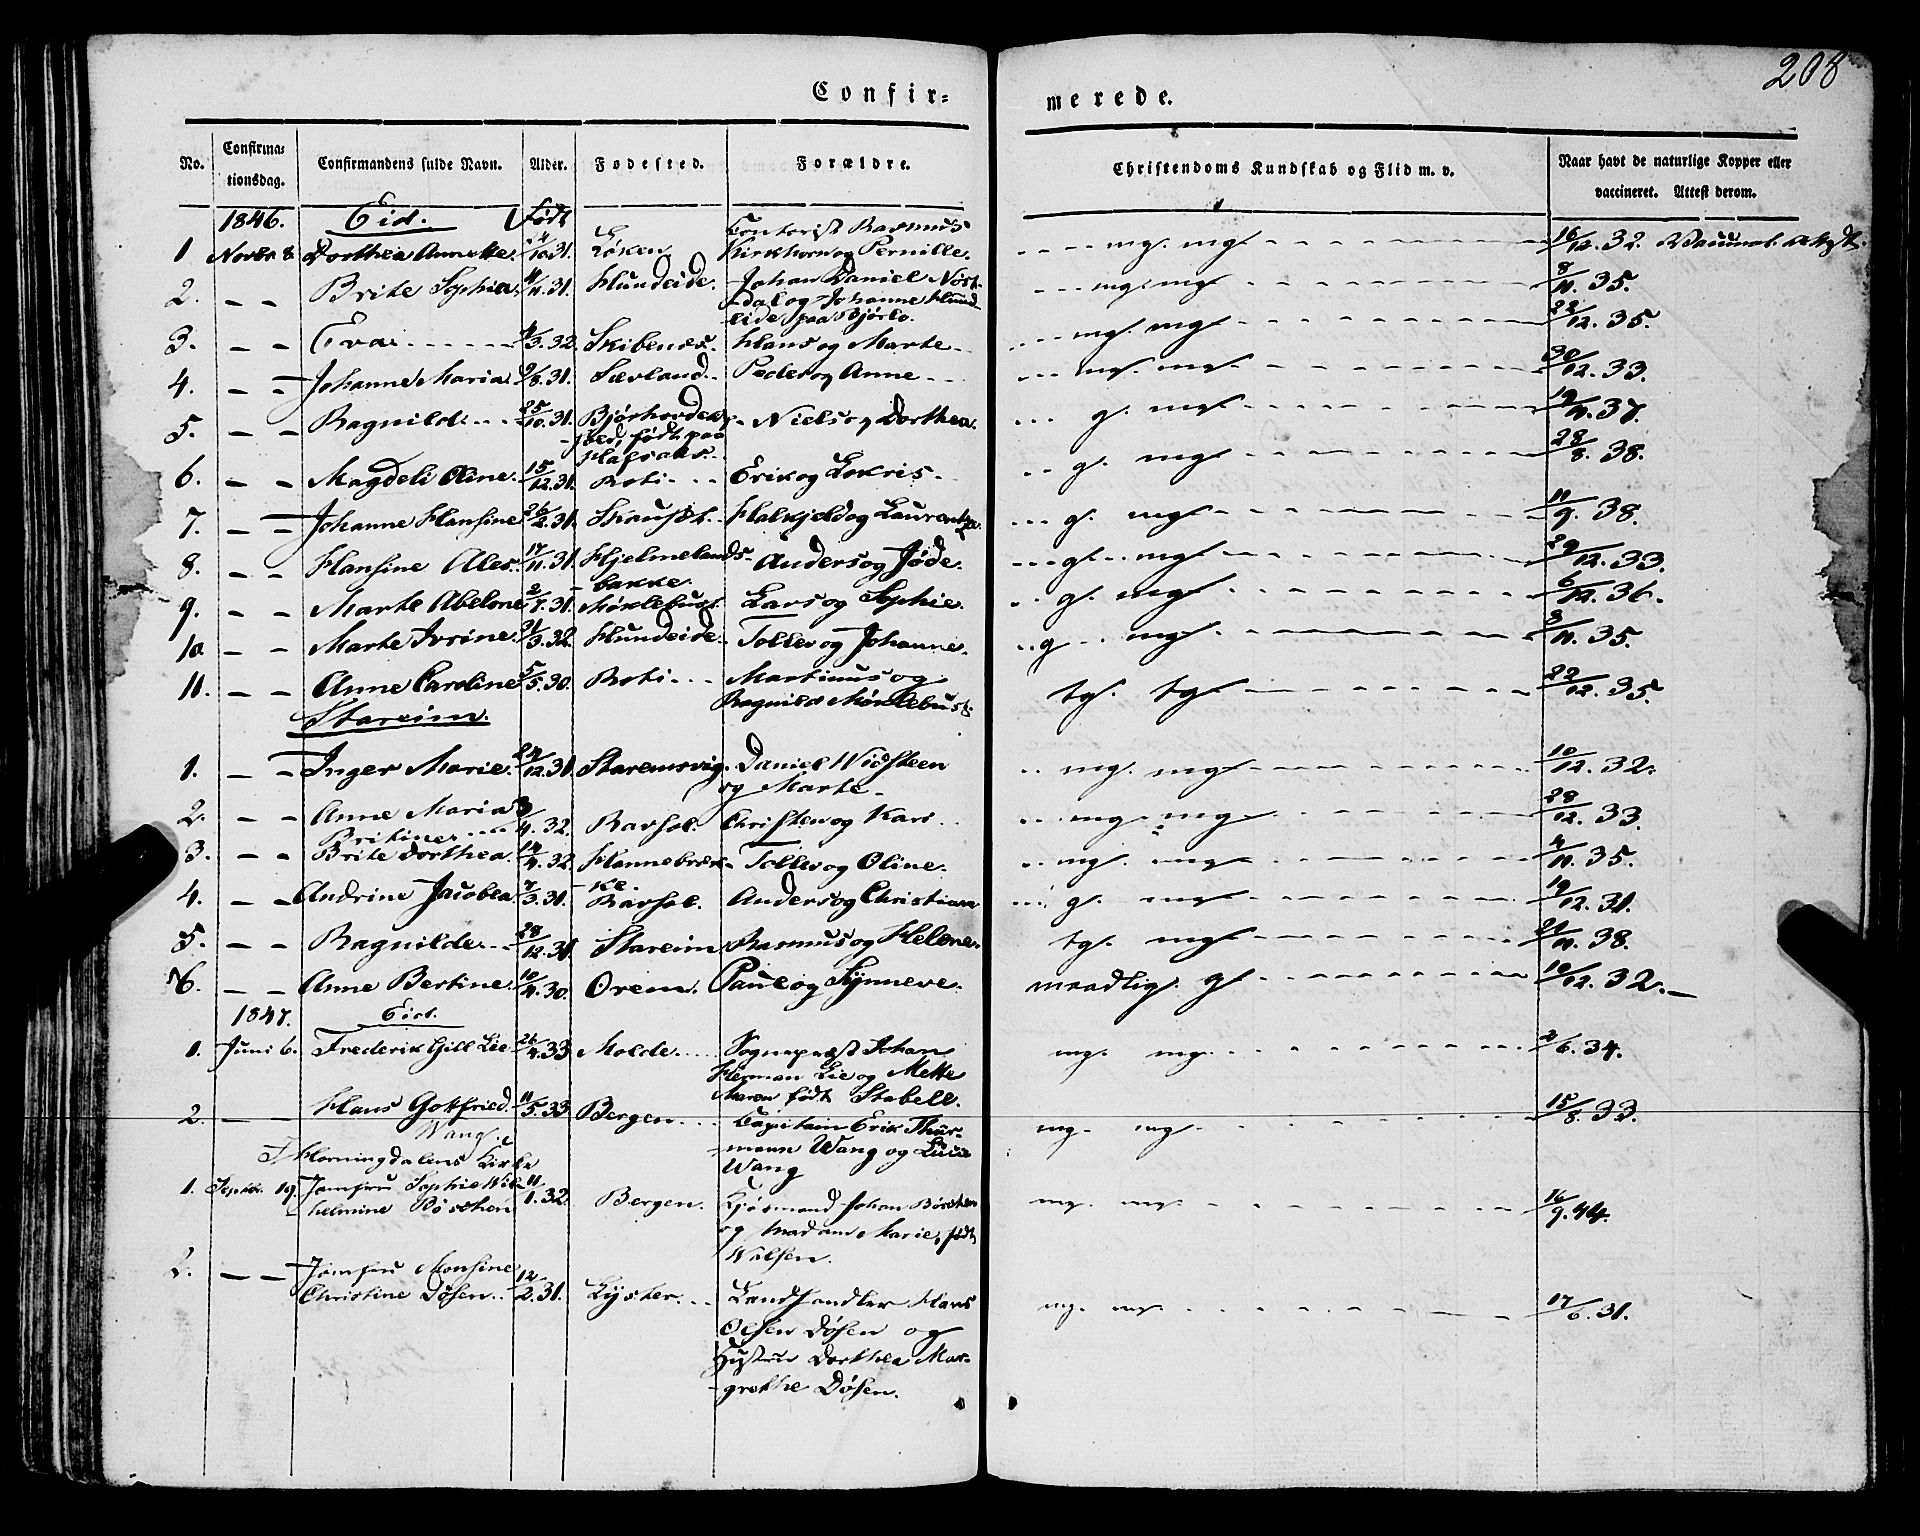 208
Confir= merede.
No. Confirma= tionsdag. Confirmandens fulde Navn. Alder. Fødested. Forældre. Christendoms Kundskab og Flid m. v. Naar havt de naturlige Kopper eller vaccineret. Attest derom.
1846. Eid. Født
1 Novbr 8 Dorthea Annette. /10 31. Løken. Contorist Rasmus Kirkhorn og Pernille. mg. mg. 16/12. 32.
2. – – Brite Sophia 4/11. 31. Hundeide. Johan Daniel Nøst-
dal og Johanne Hund-
eide paa Bjørlo. mg. mg. 8/11. 35.
3. – – Eva 4/3. 32. Skibenes. Hans og Marte mg. mg. 22/12. 35.
4. – – Johanne Maria 9/8. 31. Sævland. Peder og Anne mg. mg. 30/12. 33.
5. – – Ragnild 25/10. 31. født paa Nielsog Dorthea. g. mg. 19/11. 37.
6. – – Magdeli Oline. 15/12. 31. Roti Erikog Lokris g. mg. 28/8. 38.
7. – – Johanne Hansine 26/2. 31. Halkjeld og g. mg. 11/9. 38.
8. – – Hansine Ales. 17/11. 31. Hjelmelands-
bakke. Andersog Jøde. g. mg. 29/12. 33.
9. – – Marte Abelone 2/7. 31. Møklebust. Larsog Sophie. g. mg. 6/12. 36.
10 – – Marte Ivrine. 21/3. 32. Hundeide. Tollev og Johanne. g. mg. 3/11. 35.
11. – – Anne Caroline 5/5. 30. Roti Martinus og
Ragnild Møklebust. tg. tg. 22/12. 35.
Stareim.
1. – – Inger Marie. 24/12. 31. Staremsvig. Daniel Widsteen
og Marte mg. mg. 10/12. 32.
2. – – Anne Maria
Britine 3/4. 32. Ravhol. Christen og Kari mg. mg. 28/12. 33.
3. – – Brite Dorthea. 14/4. 32. Hannebræk-
ke. Tollev og Oline. mg. mg. 4/11. 35.
4. – – Andrine Jacobea 7/3. 31. Ravhol. Andersog Christiane g. mg. 19/12. 31.
5. – – Ragnilde 28/12. 31. Stareim Rasmusog Helene. tg. mg. 21/11. 38.
6. – – Anne Bertine. 10/4. 30. Orem. Pauleog Synneve. maadlig. g. 10/12. 32.
1847. Eid.
1. Juni 6. Frederik Gill Lie 26/4. 33 Molde. Sognepræst Johan
Herman Lie og Mette
Maren født Stabell. mg. mg. 2/6. 34.
2. — Hans Gotfried
Wang. 11/5. 33 Bergen Capitain Erik Thur-
mann Wang og Lucie
Wang mg. mg. 15/8. 33.
I Horningdalens Kirke
1. Septbr. 19. Jomfru Sophie Wil-
helmine Børchen 11/1. 32. Bergen. Kjøbmand Johan Børchen
og Madame Marie, født
Walsen. mg. mg. 16/9. 44.
2. – – Jomfru Monsine
Christine Døsen 12/2. 31. Lyster. Landhandler Hans
Olsen Døsen og
Hustru Dorthea Mar-
grethe Døsen. mg. mg. 17/6. 31.